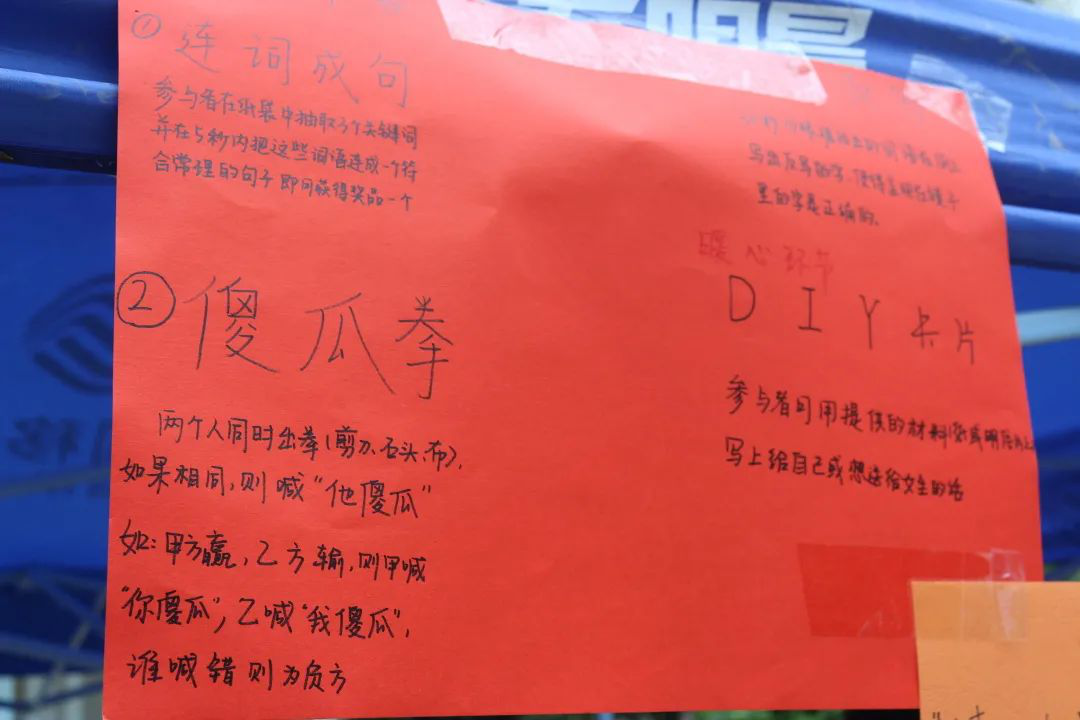 ① 连词成句
参与者在纸袋中抽取3个关键词
并在5秒内把这些词语连成一个符
合常理的句子即可获得奖品一个
② 傻瓜拳
两个人同时出拳(剪刀、石头、布),
如果相同,则喊“他傻瓜”
如:甲方赢,乙方输,则甲喊
“你傻瓜”,乙喊“我傻瓜”,
谁喊错则为负方
写出反写的字,使得呈现在镜子
里的字是正确的。
暖心环节
DIY卡片
参与者可用提供的材料
写上给自己或想送给女生的话